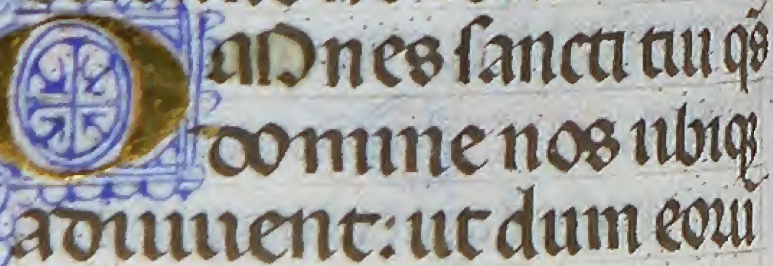 OMnes ſancti tui qs̄
domine nos ubiqꝫ
adiuuent: ut dum eoꝛū